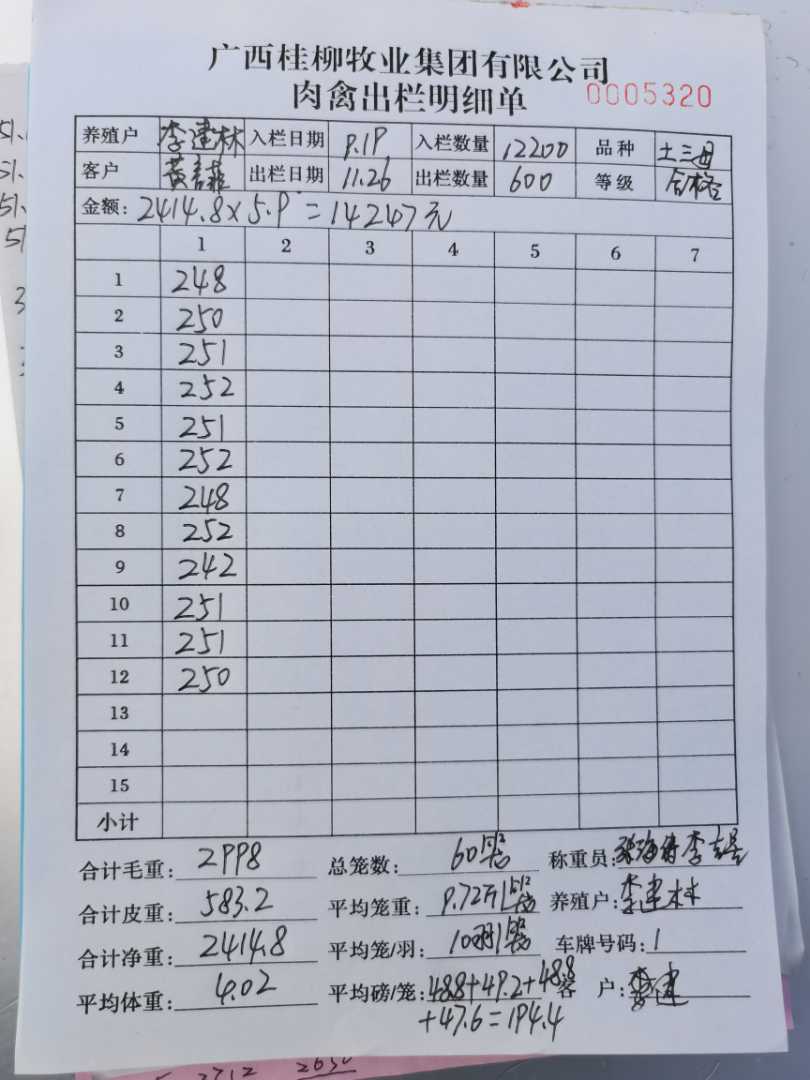 广西桂柳牧业集团有限公司
肉禽出栏明细单 0005320
养殖户 李建林 入栏日期 9.19 入栏数量 12200 品种 土三母
客户 出栏日期 11.26 出栏数量 600 等级 合格
金额: 2414.8×5.9=14247元
1 2 3 4 5 6 7
1 248
2 250
3 251
4 252
5 251
6 252
7 248
8 252
9 242
10 251
11 251
12 250
13
14
15
小计
合计毛重: 2998 总笼数: 60笼 称重员:
合计皮重: 583.2 平均笼重: 9.72斤/笼 养殖户: 李建林
合计净重: 2414.8 平均笼/羽: 10羽/笼 车牌号码: 1
平均体重: 4.02 平均磅/笼: 48.8+49.2+48.8 客户:
+47.6=194.4
51.
51.
51.
51
3
2712 2650